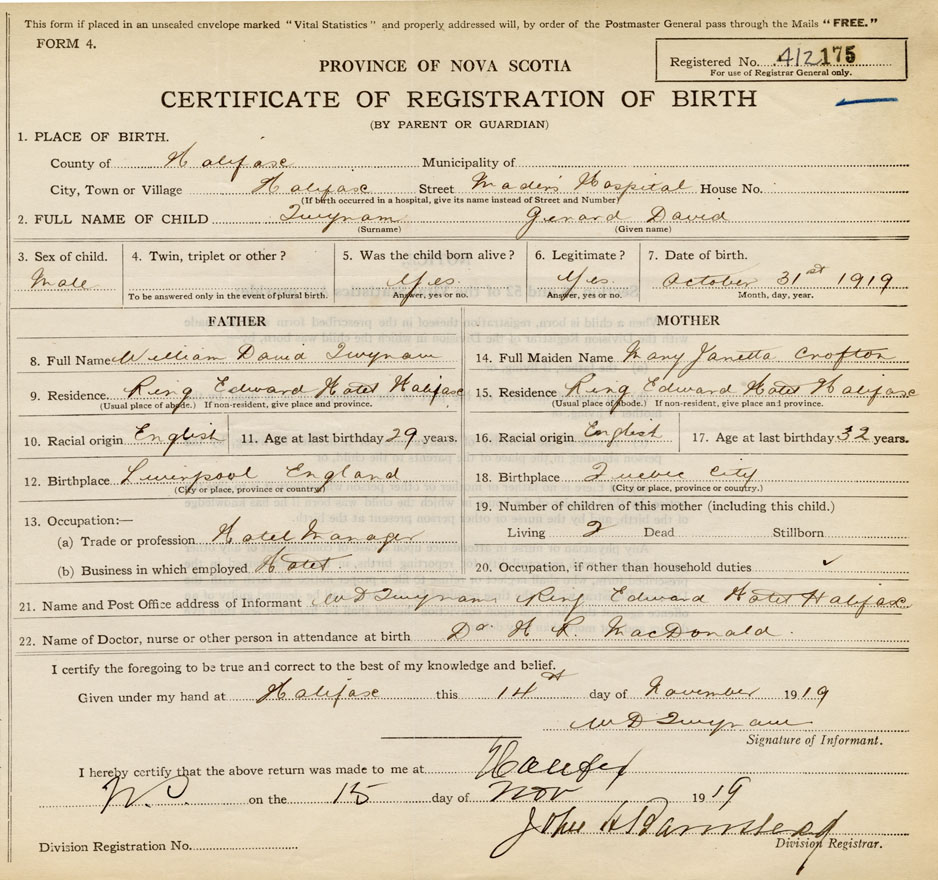 This form if placed in an unsealed envelope marked "Vital Statistics" and properly addressed will, by order of the Postmaster General pass through the Mails "FREE."
FORM 4.
Registered No. 412175
For use of Registrar General only.
PROVINCE OF NOVA SCOTIA
CERTIFICATE OF REGISTRATION OF BIRTH
(BY PARENT OR GUARDIAN)
1. PLACE OF BIRTH.
County of Halifax Municipality of
City, Town or Village Halifax Street Maden's Hospital House No.
(If birth occurred in a hospital, give its name instead of Street and Number)
2. FULL NAME OF CHILD Twynam Gerard David
(Surname) (Given name)
3. Sex of child. 4. Twin, triplet or other? 5. Was the child born alive? 6. Legitimate? 7. Date of birth.
Male Yes. Yes. October 31st 1919
To be answered only in the event of plural birth. Answer, yes or no. Answer, yes or no. Month, day, year.
FATHER MOTHER
8. Full Name William David Twynam 14. Full Maiden Name Mary Janetta Crofton
9. Residence King Edward Hotel Halifax 15. Residence King Edward Hotel Halifax
(Usual place of abode.) If non-resident, give place and province. (Usual place of abode.) If non-resident, give place and province.
10. Racial origin English 11. Age at last birthday 29 years. 16. Racial origin English 17. Age at last birthday 32 years.
12. Birthplace Liverpool England 18. Birthplace Quebec City
(City or place, province or country) (City or place, province or country.)
13. Occupation:— 19. Number of children of this mother (including this child.)
(a) Trade or profession Hotel Manager Living 2 Dead Stillborn
(b) Business in which employed Hotel 20. Occupation, if other than household duties ✓
21. Name and Post Office address of Informant W D Twynam King Edward Hotel Halifax
22. Name of Doctor, nurse or other person in attendance at birth Dr H K MacDonald.
I certify the foregoing to be true and correct to the best of my knowledge and belief.
Given under my hand at Halifax this 14th day of November 1919
W D Twynam
Signature of Informant.
I hereby certify that the above return was made to me at Halifax
N.S on the 15 day of Nov 1919
John H Barnstead
Division Registrar.
Division Registration No.